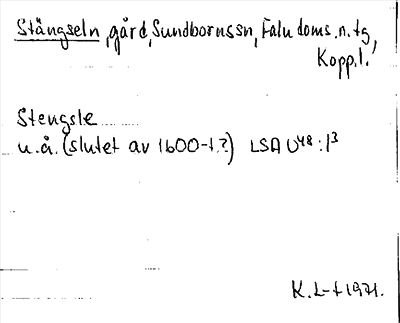 Stängseln, gård, Sundbornssn, Falu doms.n.tg,
Kopp.l.
Stengsle
u.å. (slutet av 1600-t.?) LSA U48:13
K.L-t 1971.